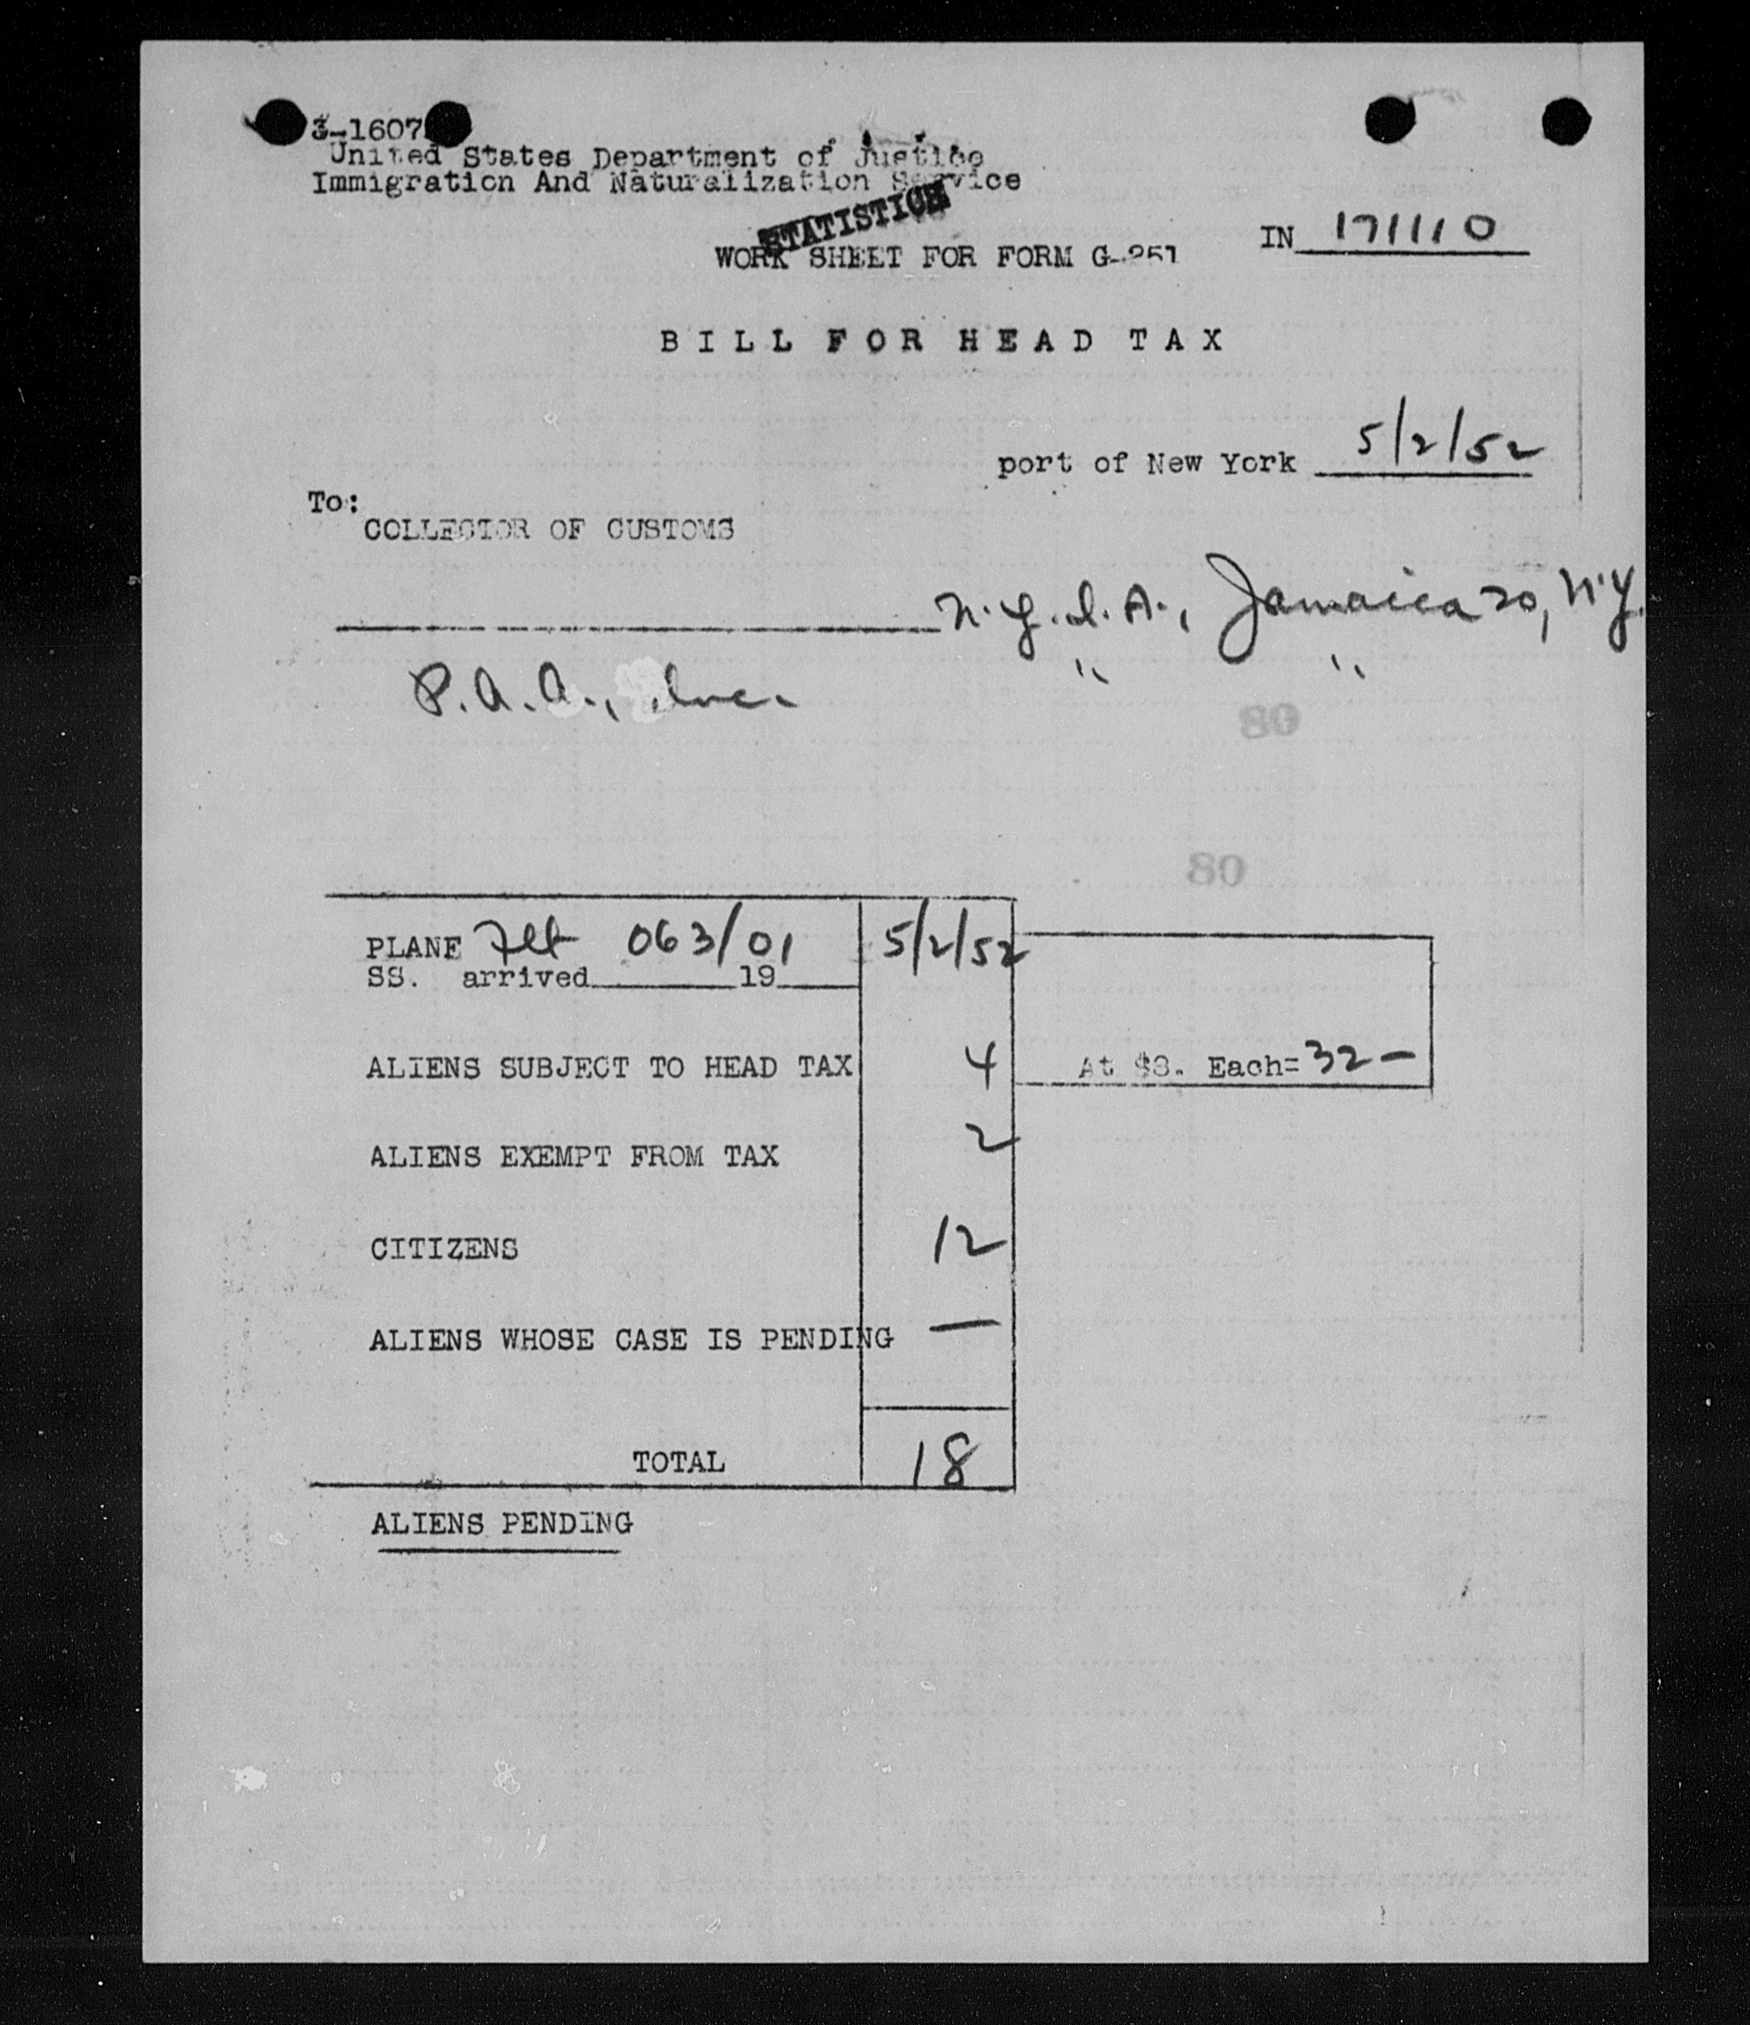 3-1607
United States Department of Justice
Immigration And Naturalization Service
STATISTICS
WORK SHEET FOR FORM G-251
IN 171110
BILL FOR HEAD TAX
port of New York 5/2/52
To:
COLLECTOR OF CUSTOMS
N.Y.I.A., Jamaica 30, N.Y.
P.A.A., Inc. " "
80
80
PLANE Flt 063/01 5/2/52
SS. arrived 19
ALIENS SUBJECT TO HEAD TAX 4 At $8. Each=32-
ALIENS EXEMPT FROM TAX 2
CITIZENS 12
ALIENS WHOSE CASE IS PENDING —
TOTAL 18
ALIENS PENDING